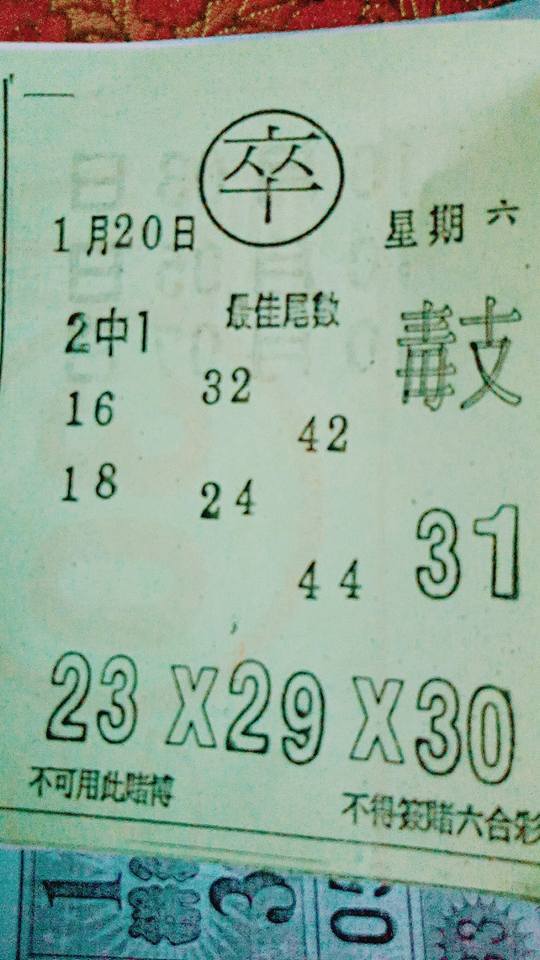 卒
1月20日 星期六
2中1 最佳尾數
16 32
42
18 24
44 31
23X29X30
不可用此賭博 不得簽賭六合彩